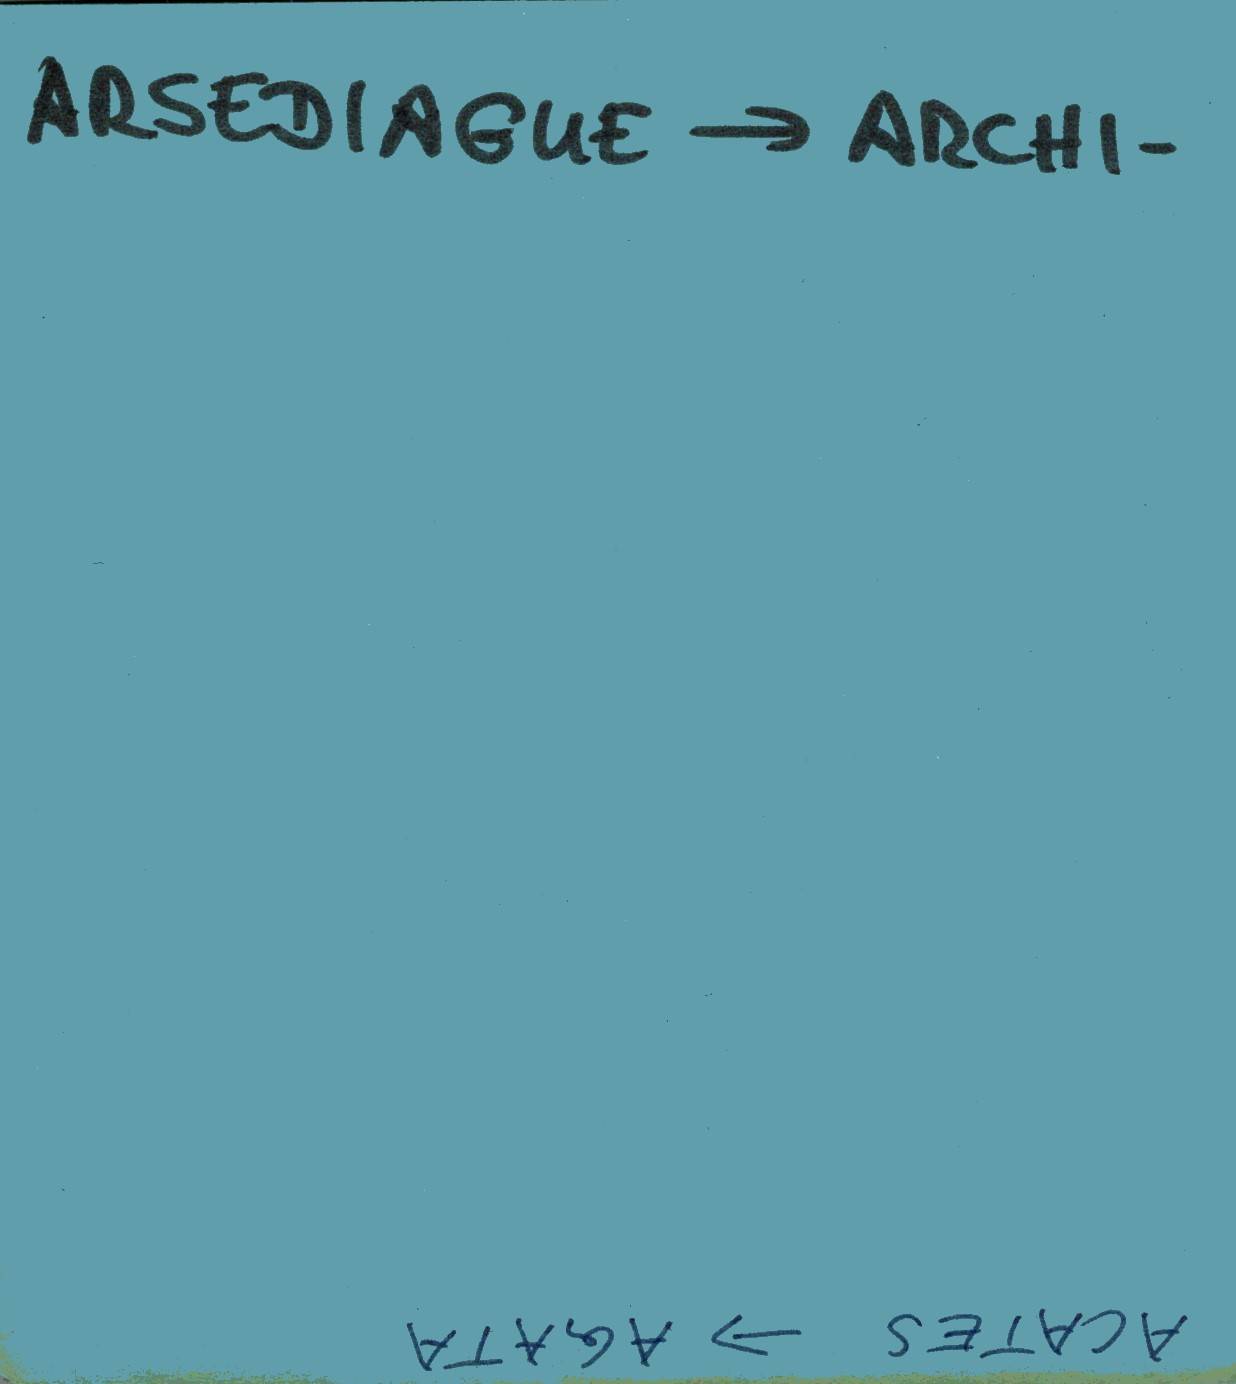 ARSEDIAGUE → ARCHI-
ACATES → AGATA